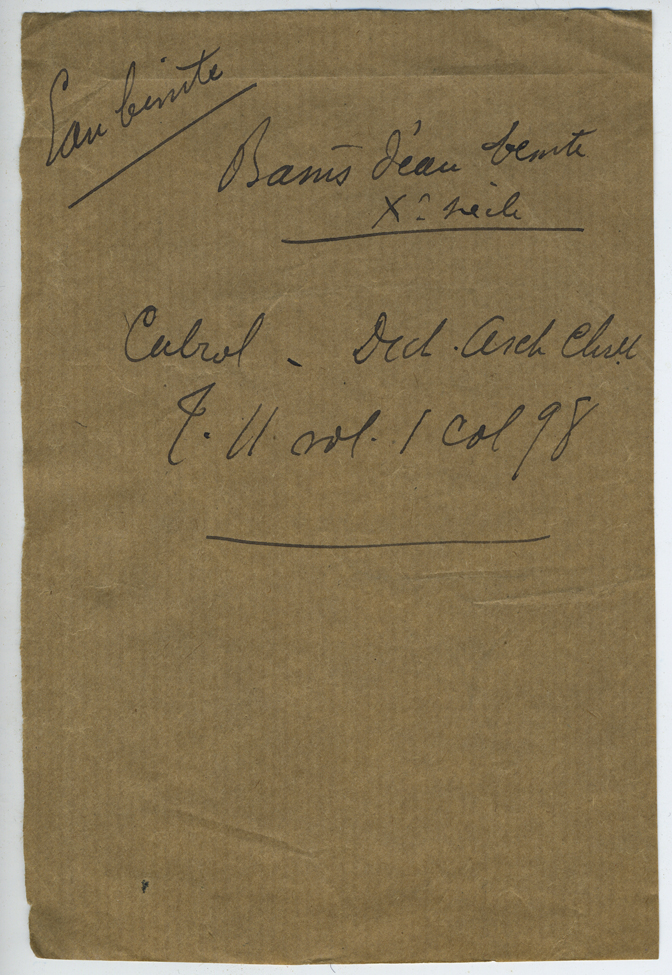 Eau bénite
Bains d'eau bénite
Xe siècle
Cabrol - Dict. Arch Chret
T. II vol. 1 col 98